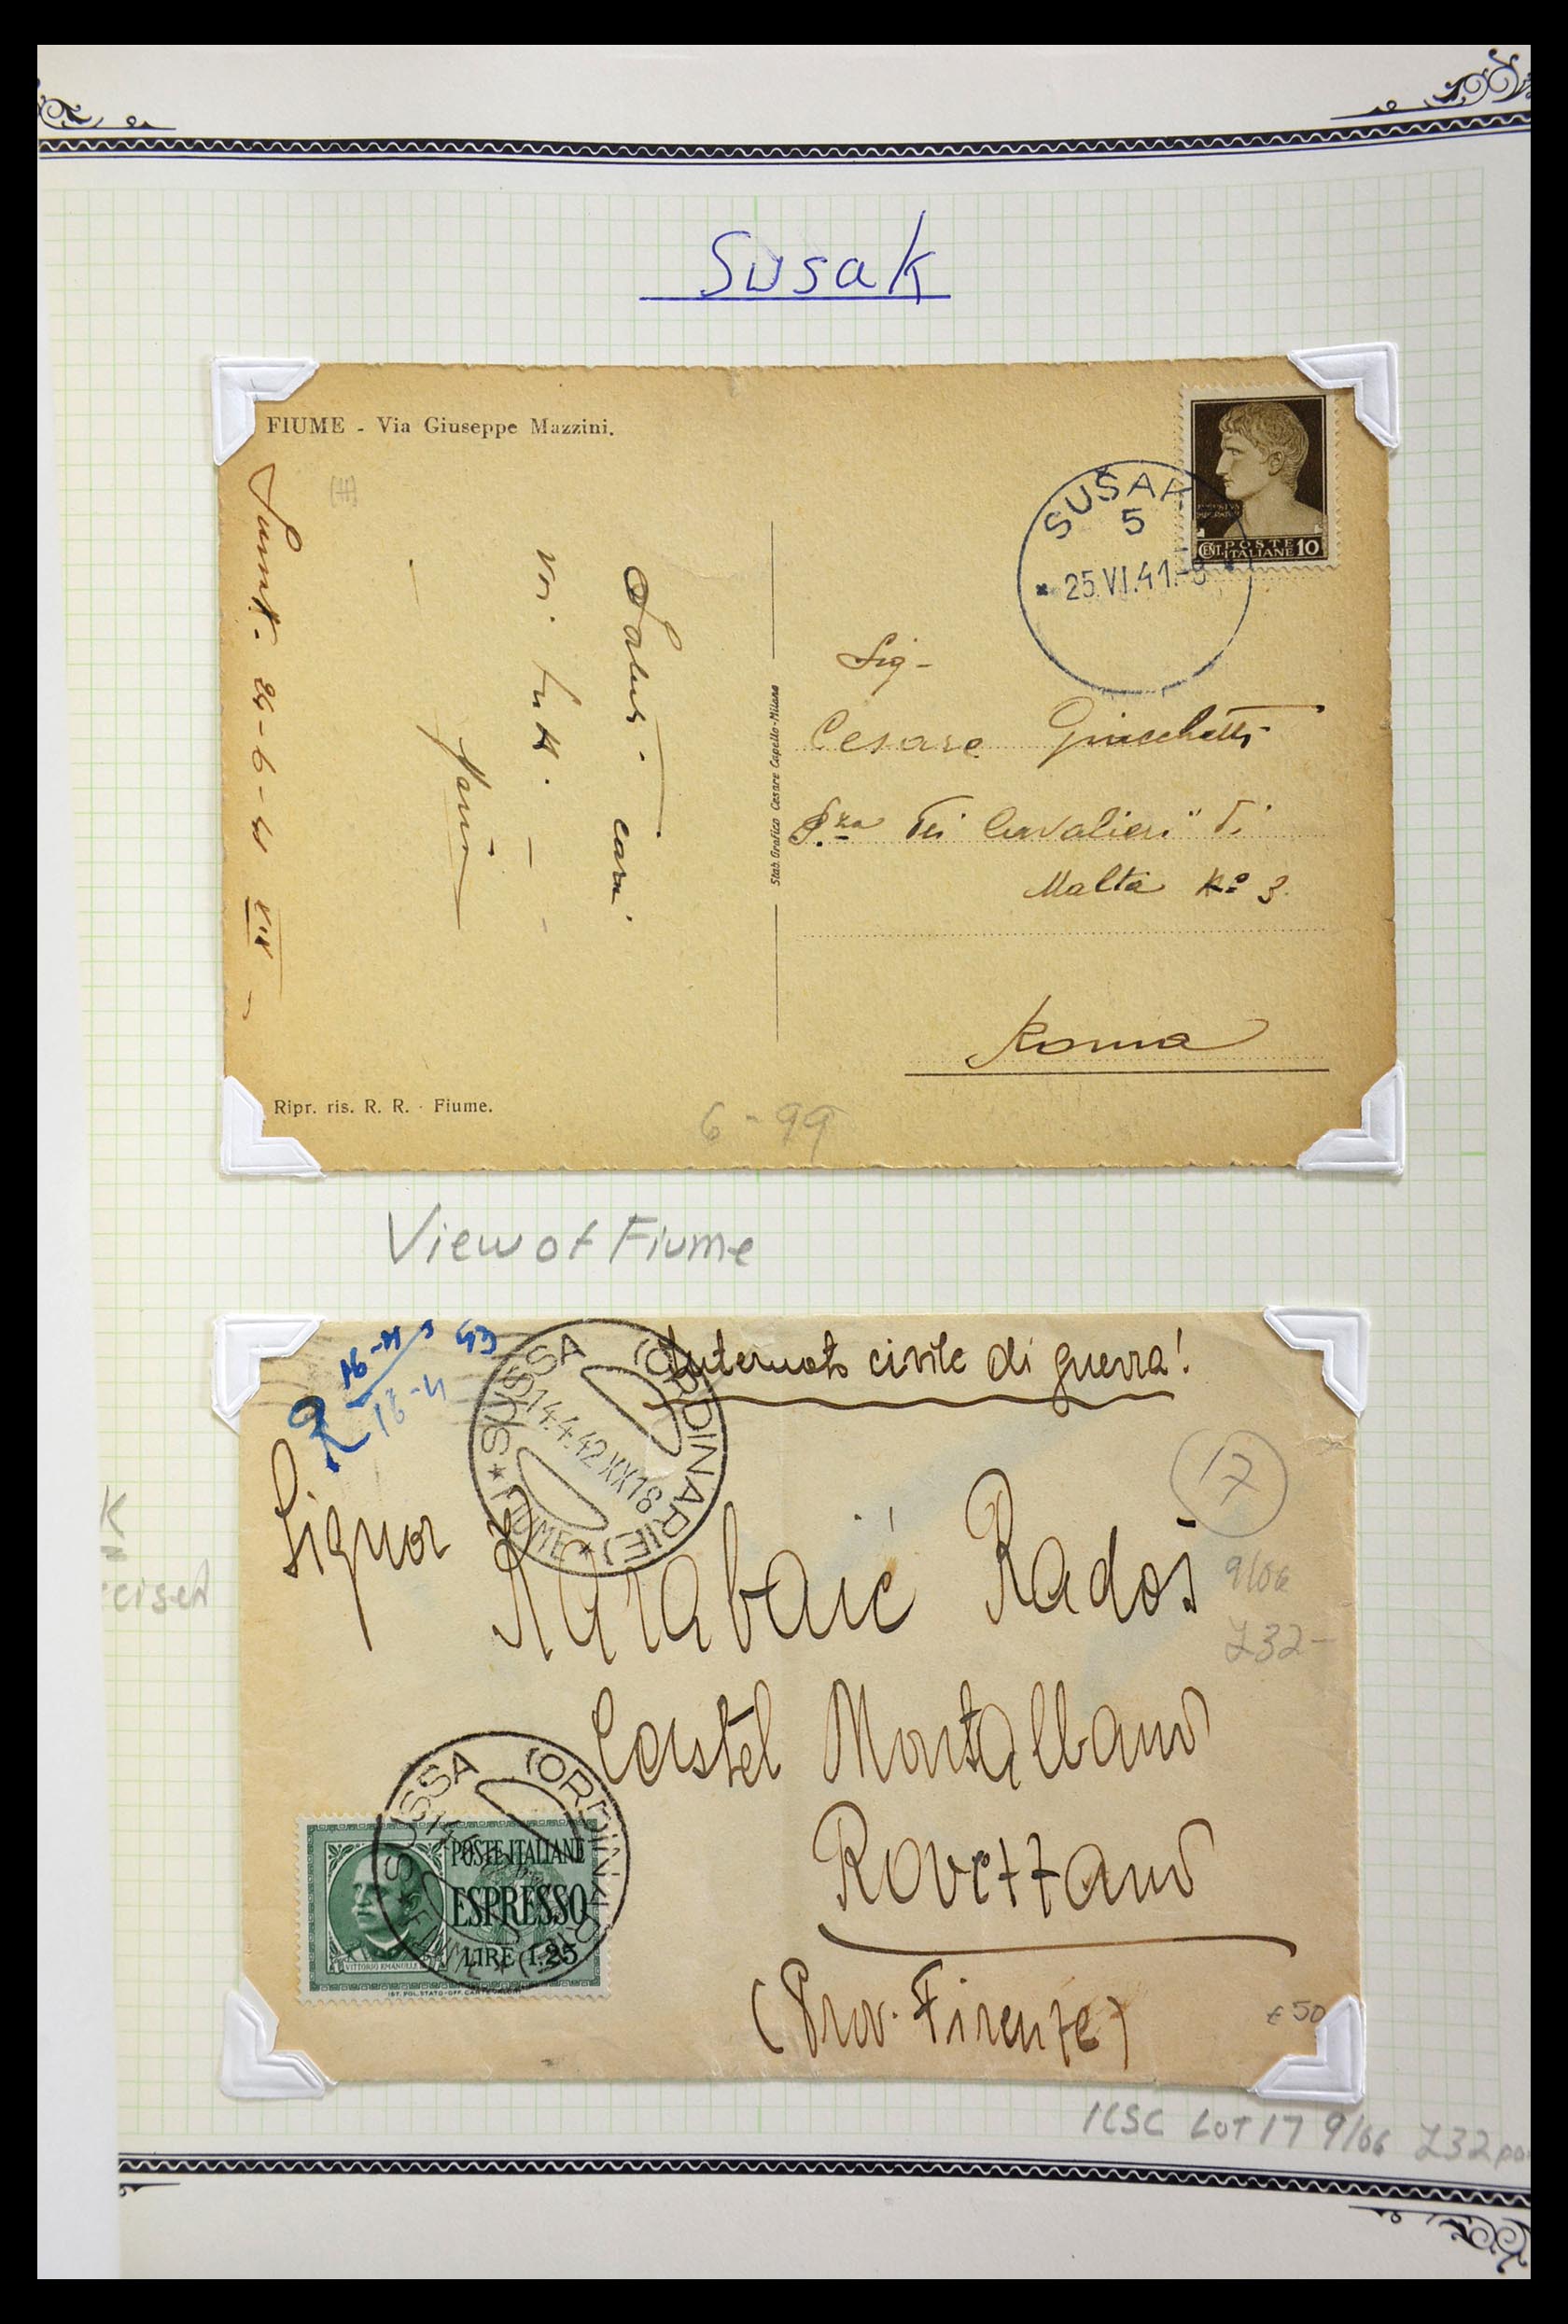 Susak
FIUME - Via Giuseppe Mazzini.
SUŠAK
5
25.VI.41.-8
CENT. POSTE ITALIANE 10
Saluti cari
Voi tutti.
24-6-41 XIX -
Stab. Grafico Cesare Capello-Milano
Sig-
Cesare Giacchetti
P.za dei Cavalieri di
Malta No 3.
Roma
Ripr. ris. R. R. - Fiume.
6-99
View of Fiume
Internato civile di guerra!
SUSSA (ORDINARIE)
14.4.42 XX 18
* FIUME *
R
Signor Karabaić Radoš
Castel Montalbano
Rovezzano
(Prov. Firenze)
17
9/06
£32-
£50
SUSSA (ORDINARIE)
POSTE ITALIANE
ESPRESSO
LIRE 1.25
VITTORIO EMANUELE
IST. POL. STATO-OFF. CARTE VALORI
K
ICSC LOT 17 9/06 £32